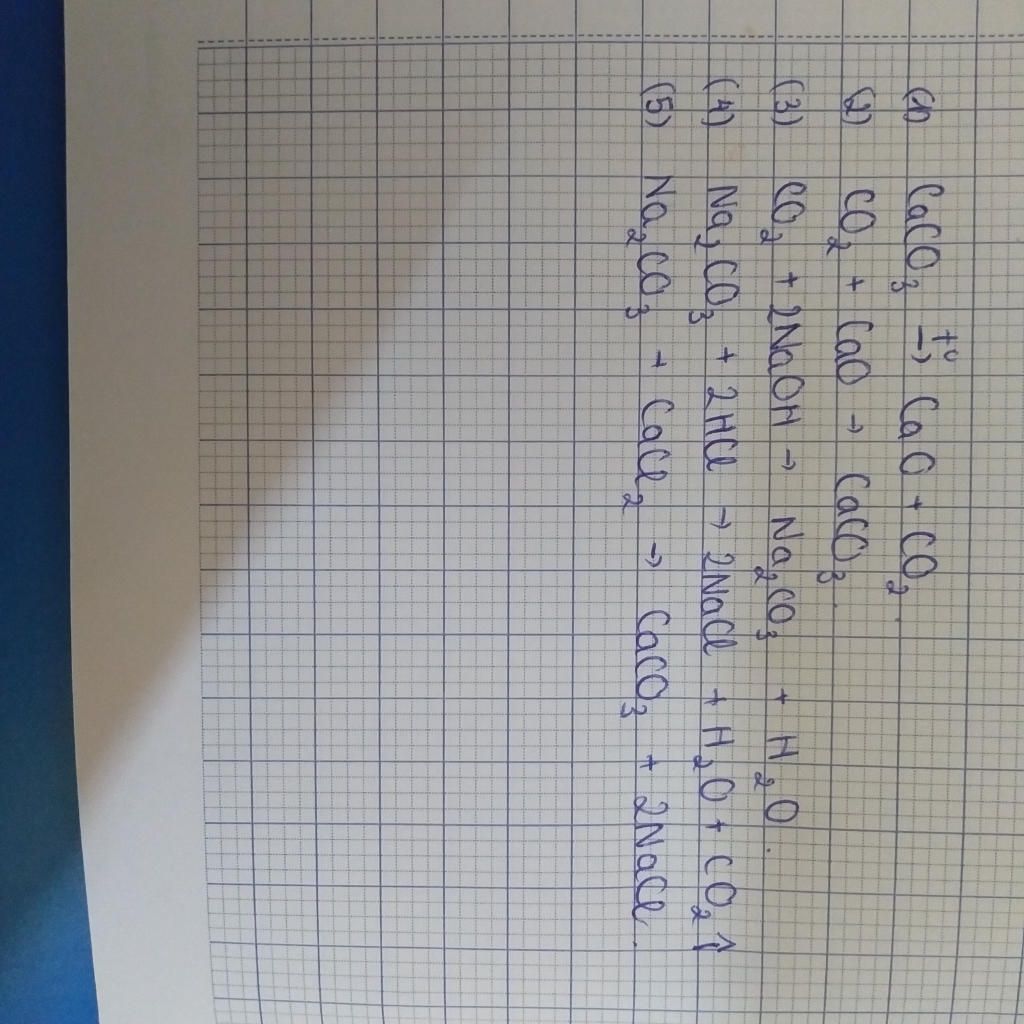 (1) CaCO₃ →(t°) CaO + CO₂.
(2) CO₂ + CaO → CaCO₃.
(3) CO₂ + 2NaOH → Na₂CO₃ + H₂O.
(4) Na₂CO₃ + 2HCl → 2NaCl + H₂O + CO₂↑
(5) Na₂CO₃ + CaCl₂ → CaCO₃ + 2NaCl.